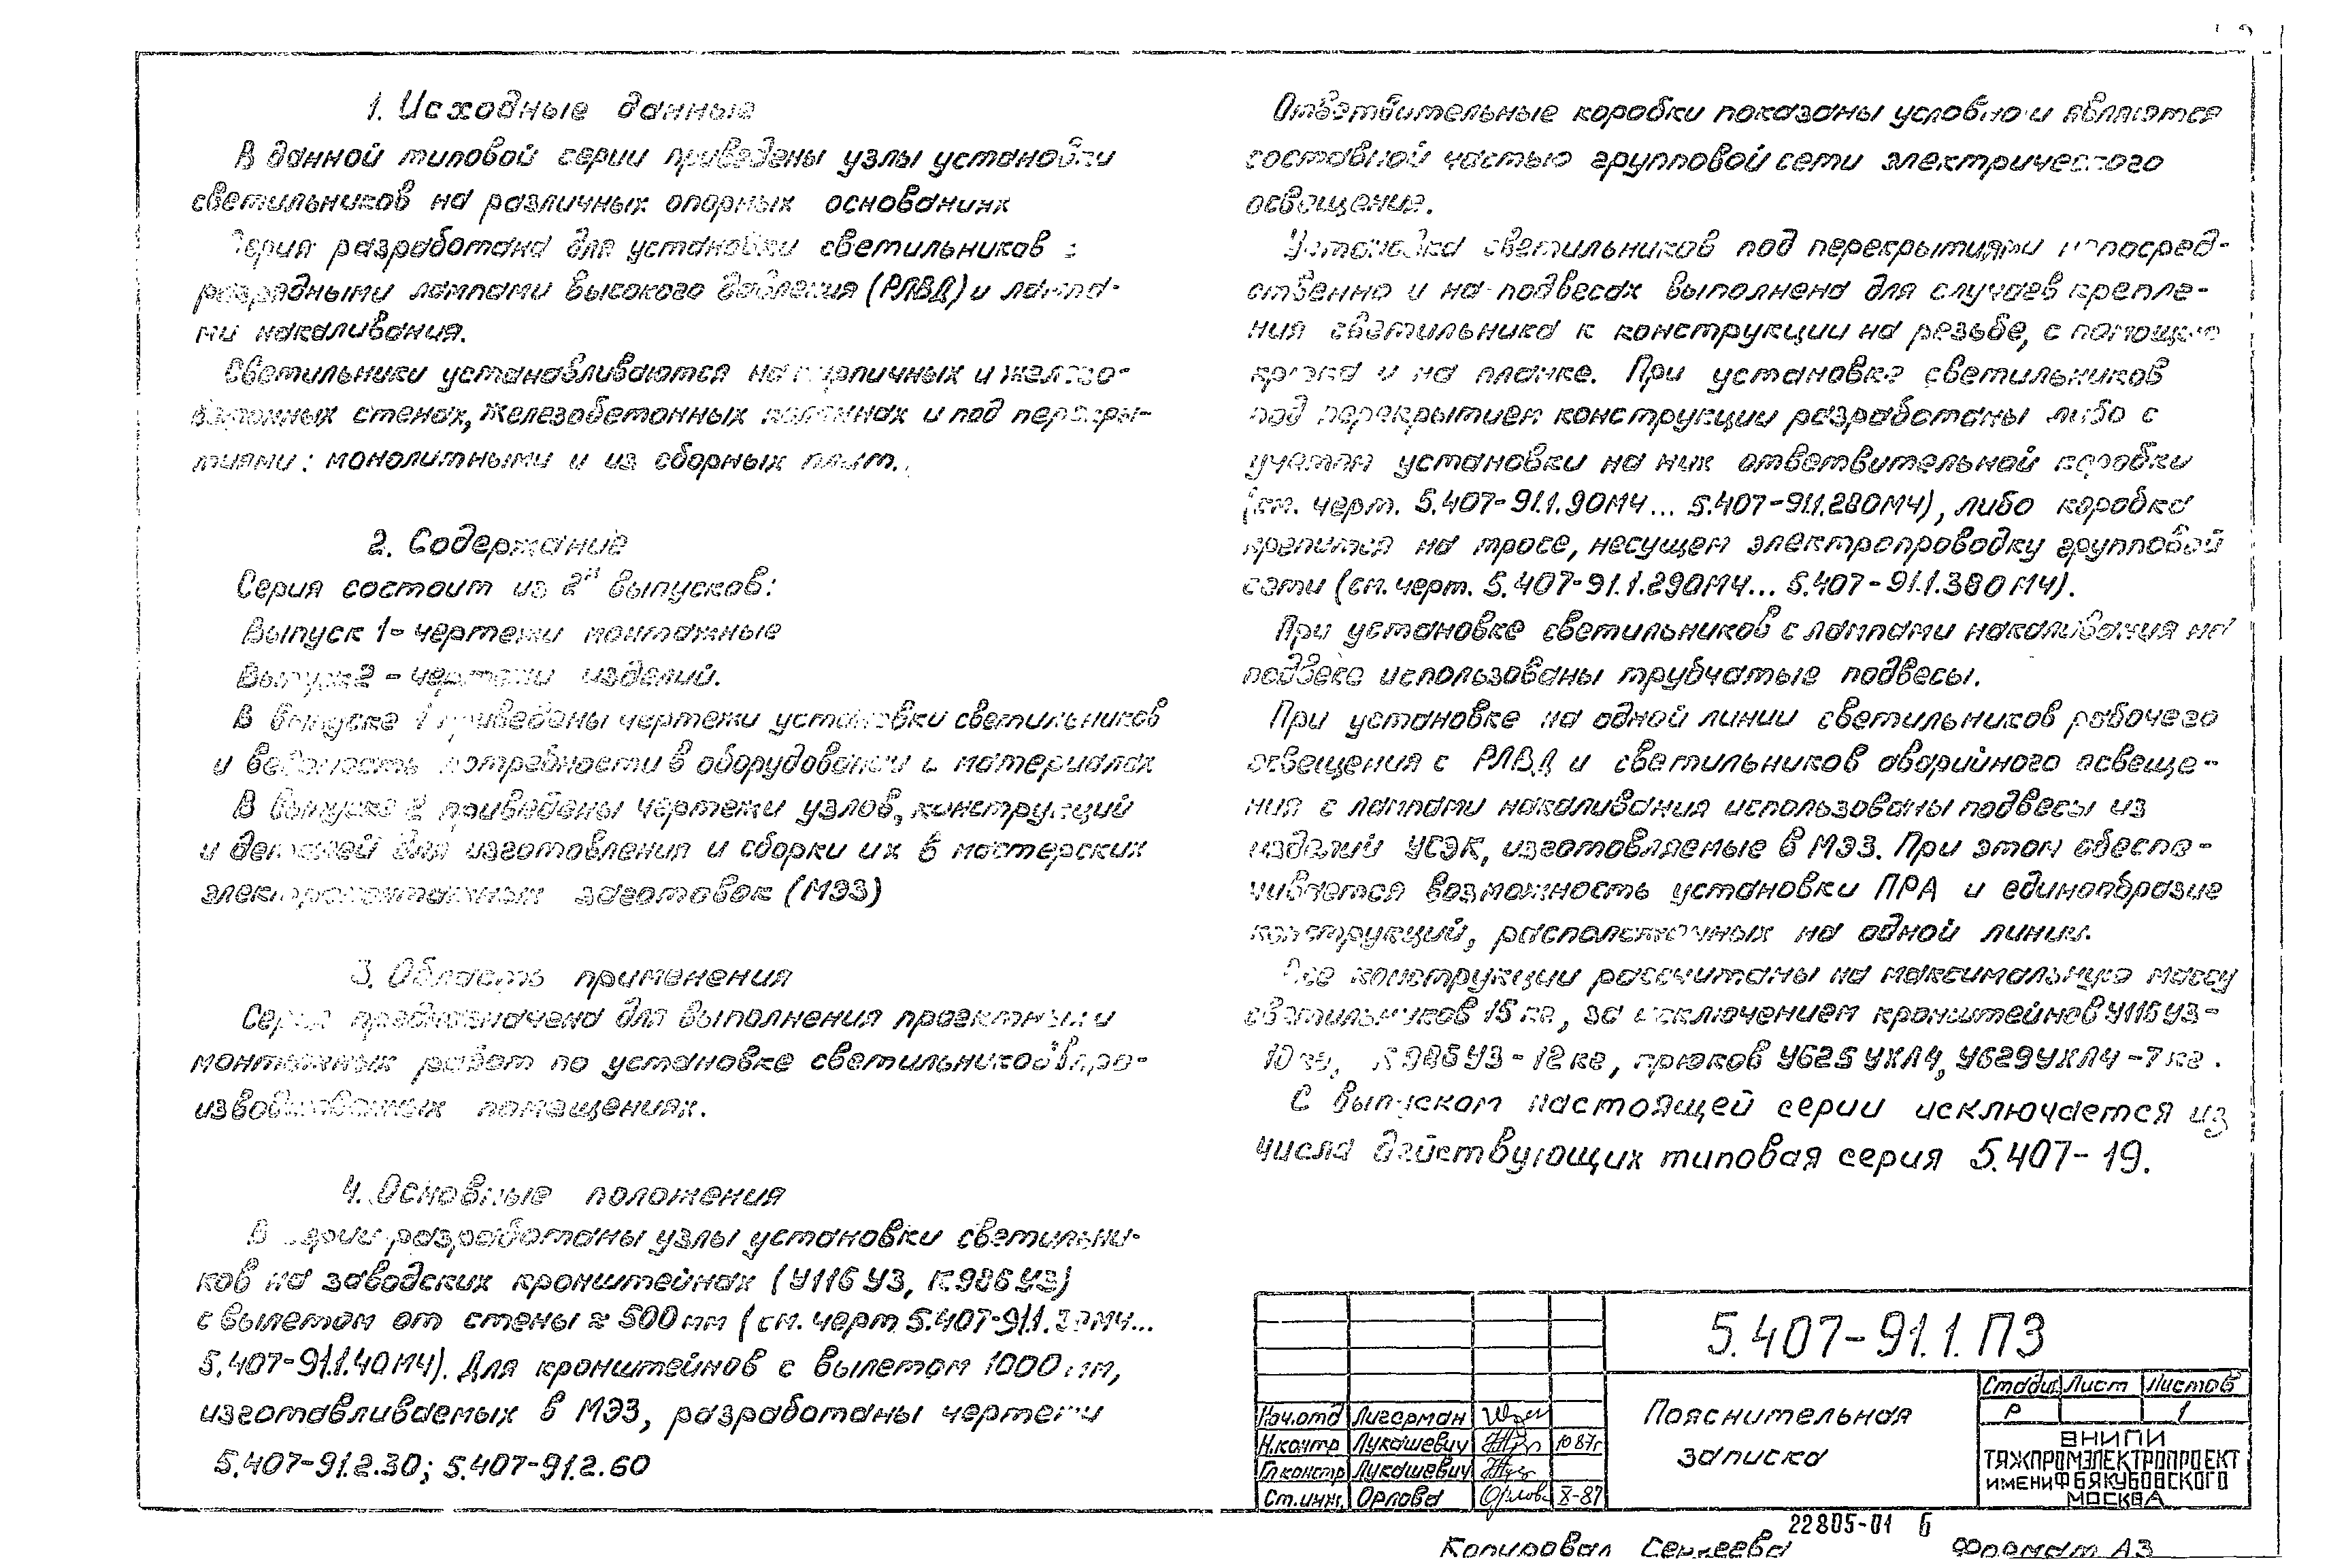 1. Исходные данные
В данной типовой серии приведены узлы установки
светильников на различных опорных основаниях
Серия разработана для установки светильников с
разрядными лампами высокого давления (РЛВД) и лампа-
ми накаливания.
Светильники устанавливаются на кирпичных и железо-
бетонных стенах, железобетонных колоннах и под перекры-
тиями: монолитными и из сборных плит.
2. Содержание
Серия состоит из 2х выпусков:
Выпуск 1 - чертежи монтажные
Выпуск 2 - чертежи изделий.
В выпуске 1 приведены чертежи установки светильников
и ведомость потребности в оборудовании и материалах
В выпуске 2 приведены чертежи узлов, конструкций
и деталей для изготовления и сборки их в мастерских
электромонтажных заготовок (МЭЗ)
3. Область применения
Серия предназначена для выполнения проектных и
монтажных работ по установке светильников в про-
изводственных помещениях.
4. Основные положения
В серии разработаны узлы установки светильни-
ков на заводских кронштейнах (У116 У3, К986 У3)
с вылетом от стены ≈ 500 мм (см. черт. 5.407-91.1. МЧ...
5.407-91.1.40МЧ). Для кронштейнов с вылетом 1000 мм,
изготавливаемых в МЭЗ, разработаны чертежи
5.407-91.2.30; 5.407-91.2.60
Ответвительные коробки показаны условно и являются
составной частью групповой сети электрического
освещения.
Установка светильников под перекрытиями непосред-
ственно и на подвесах выполнена для случаев крепле-
ния светильника к конструкции на резьбе, с помощью
крюка и на планке. При установке светильников
под перекрытием конструкции разработаны либо с
учетом установки на них ответвительной коробки
(см. черт. 5.407-91.1.90МЧ... 5.407-91.1.280МЧ), либо коробка
крепится на тросе, несущем электропроводку групповой
сети (см. черт. 5.407-91.1.290МЧ... 5.407-91.1.380МЧ).
При установке светильников с лампами накаливания на
подвесе использованы трубчатые подвесы.
При установке на одной линии светильников рабочего
освещения с РЛВД и светильников аварийного освеще-
ния с лампами накаливания использованы подвесы из
изделий УСЭК, изготовляемые в МЭЗ. При этом обеспе-
чивается возможность установки ПРА и единообразие
конструкций, расположенных на одной линии.
Все конструкции рассчитаны на максимальную массу
светильников 15 кг, за исключением кронштейнов У116 У3-
10 кг, К986 У3 - 12 кг, крюков У625 УХЛ4, У629 УХЛ4 - 7 кг.
С выпуском настоящей серии исключается из
числа действующих типовая серия 5.407-19.
5.407-91.1.ПЗ
Пояснительная
записка
Стадия Лист Листов
Р 1
ВНИПИ
ТЯЖПРОМЭЛЕКТРОПРОЕКТ
ИМЕНИ Ф.Б.ЯКУБОВСКОГО
МОСКВА
Нач.отд Лигерман
Н.контр Лукашевич 1087г
Гл.констр Лукашевич
Ст.инж. Орлова X-87
22805-01 6
Копировал Сергеева Формат А3